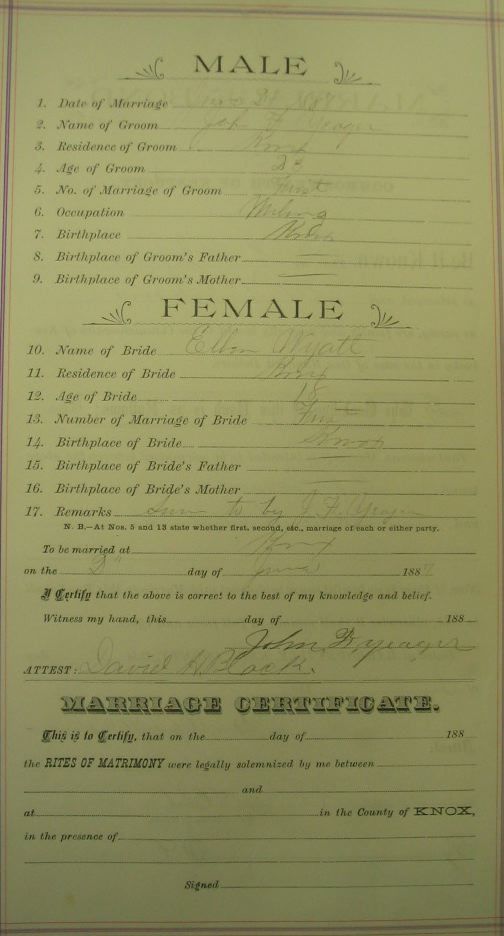 MALE
1. Date of Marriage
2. Name of Groom Yeager
3. Residence of Groom Knox
4. Age of Groom
5. No. of Marriage of Groom First
6. Occupation
7. Birthplace Knox
8. Birthplace of Groom's Father —
9. Birthplace of Groom's Mother —
FEMALE
10. Name of Bride Ellen Wyatt
11. Residence of Bride Knox
12. Age of Bride 18
13. Number of Marriage of Bride First
14. Birthplace of Bride Knox
15. Birthplace of Bride's Father —
16. Birthplace of Bride's Mother —
17. Remarks to by J. F. Yeager
N. B.—At Nos. 5 and 13 state whether first, second, etc., marriage of each or either party.
To be married at Knox
on the 2" day of June 1887
I Certify that the above is correct to the best of my knowledge and belief.
Witness my hand, this day of 188
John F Yeager
ATTEST: David H. Black.
MARRIAGE CERTIFICATE.
This is to Certify, that on the day of 188
the RITES OF MATRIMONY were legally solemnized by me between
and
at in the County of KNOX,
in the presence of
Signed